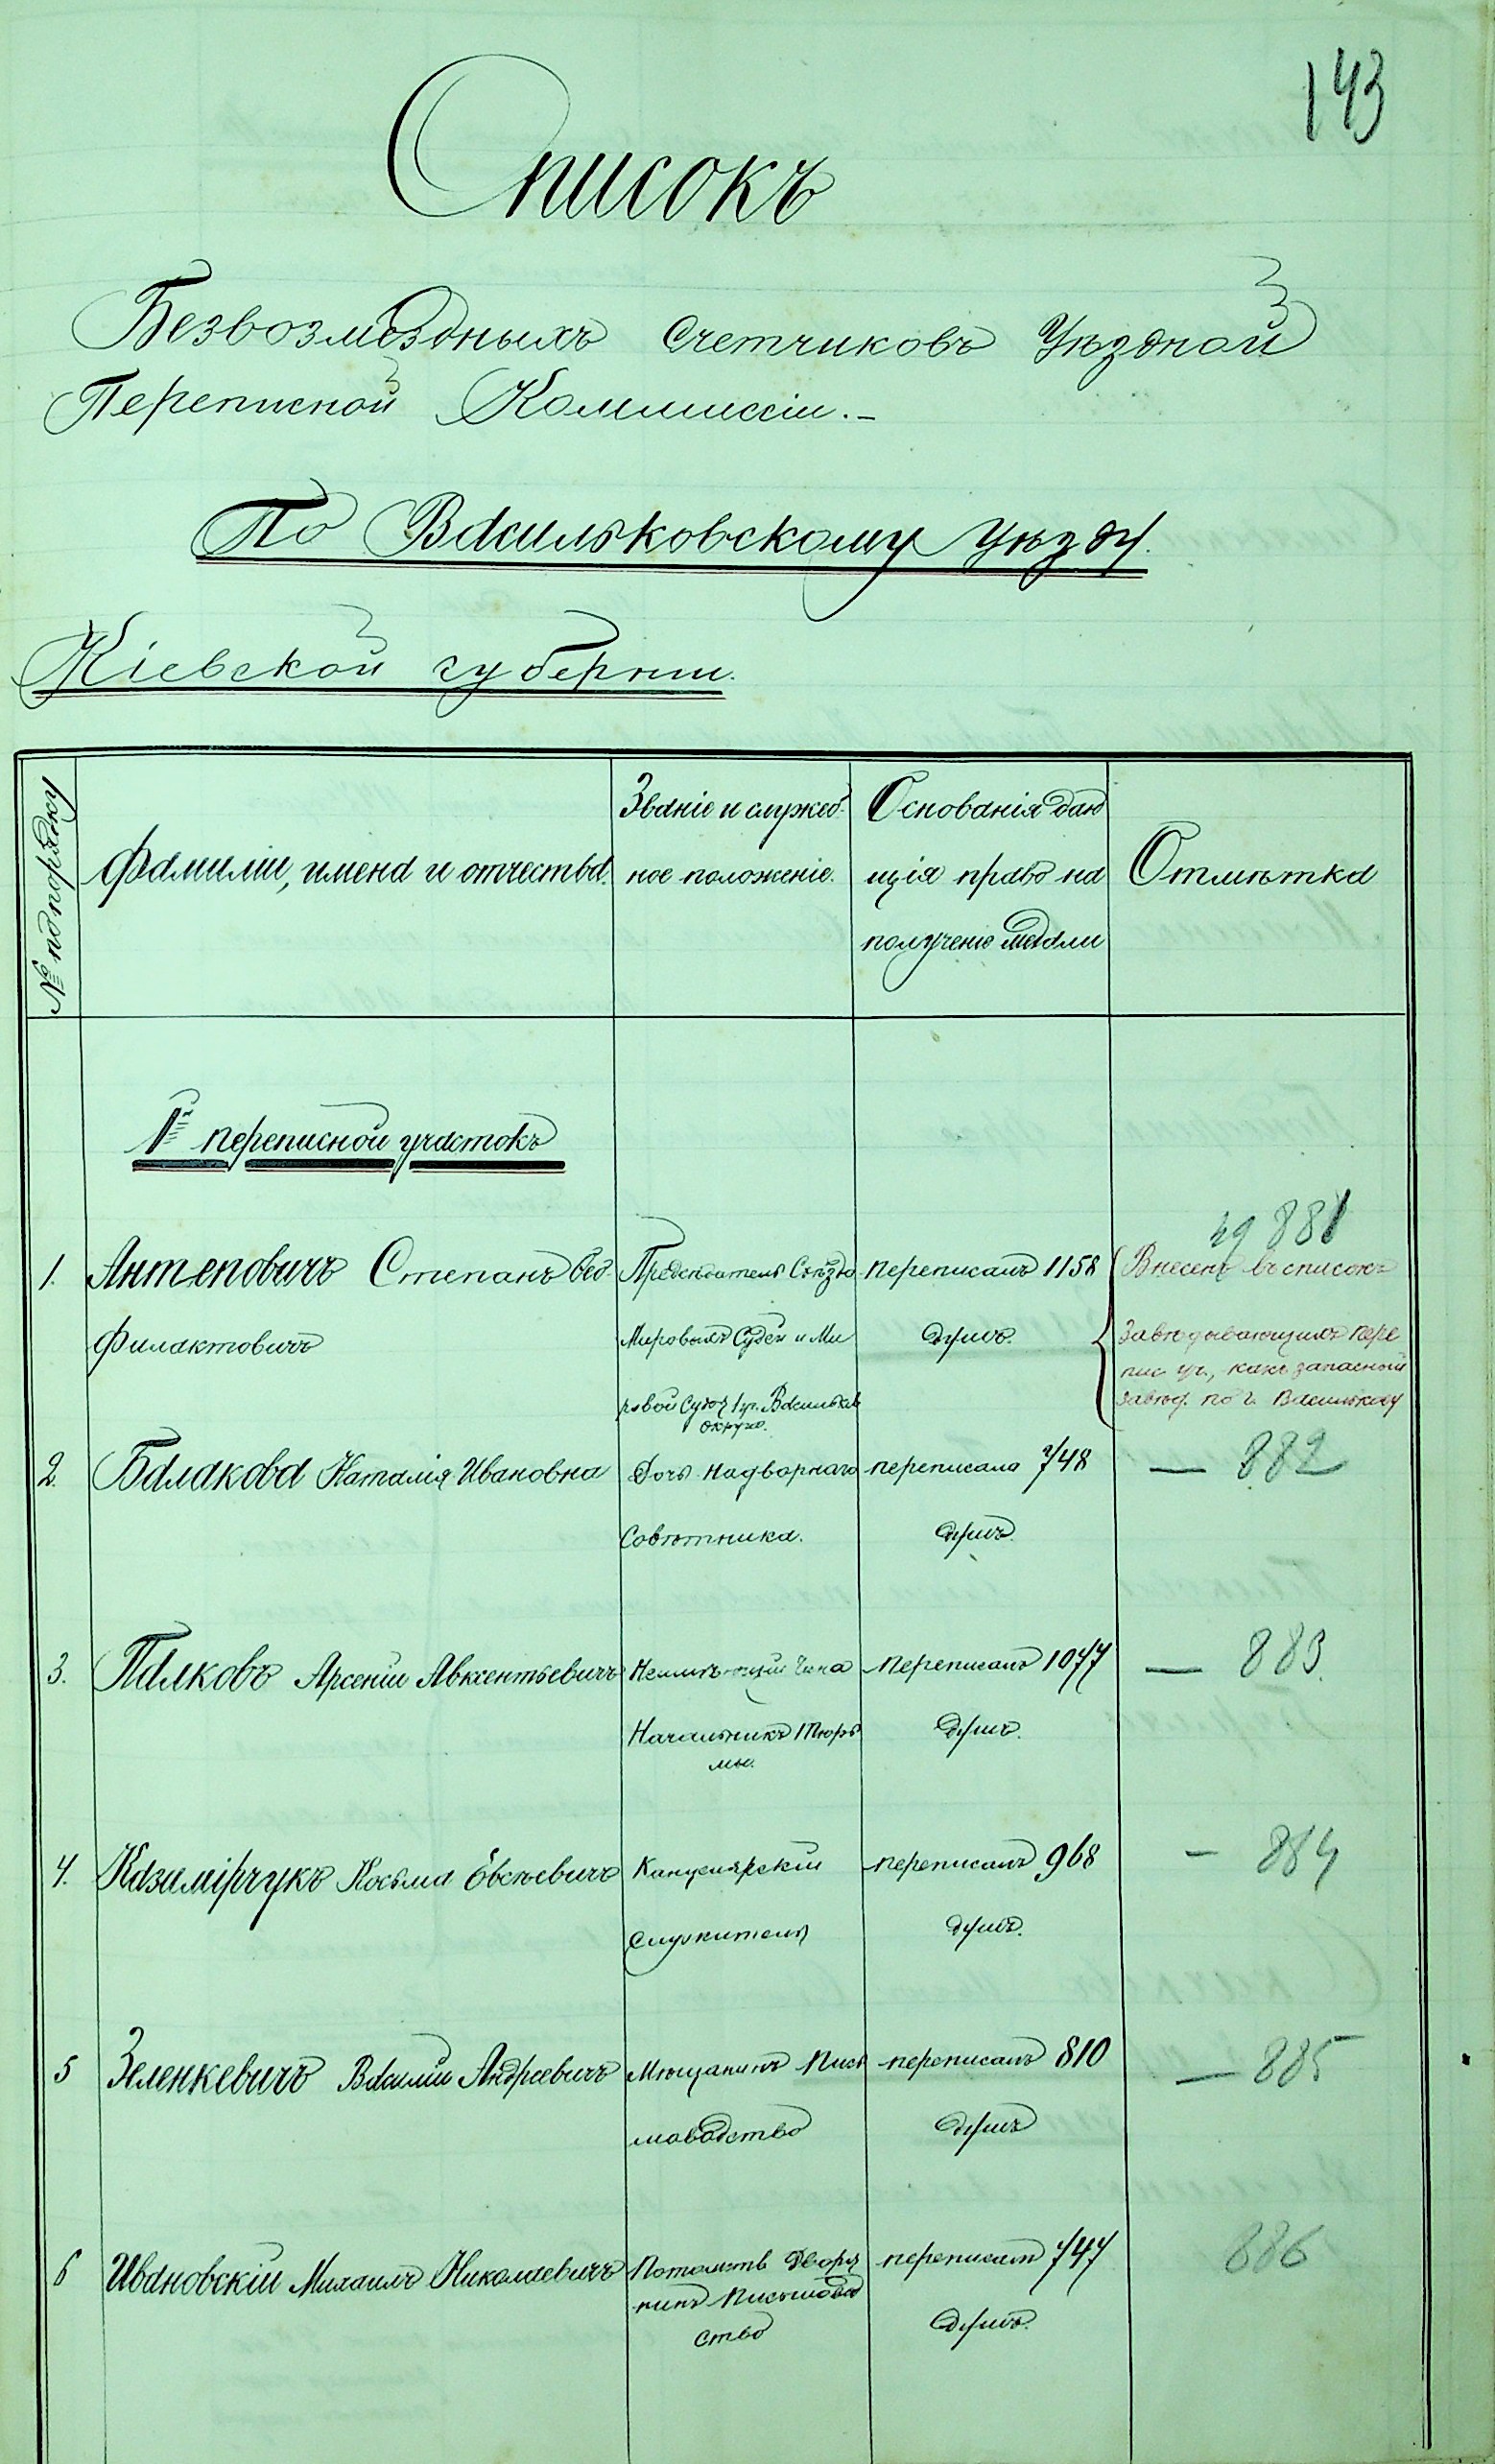 143
Списокъ
Безвозмездныхъ Счетчиковъ Уѣздной
Переписной Коммиссіи.-
По Васильковскому уѣзду.
Кіевской губерніи.
№ по порядку
Фамиліи, имена и отчества.
Званіе и служеб-
ное положеніе.
Основанія даю
щія право на
полученіе медали
Отмѣтка
1й переписной участокъ
1. Антеповичъ Степанъ Фео-
филактовичъ
Предсѣдатель Съѣзда
Мировыхъ Судей и Ми
ровой Судья 1 уч. Васильков
округа.
переписалъ 1158
душъ.
881
Внесенъ въ списокъ
Завѣдывающихъ пере
пис уч., какъ запасный
завѣд. по г. Василькову
2. Балакова Наталія Ивановна
Дочь Надворнаго
Совѣтника.
переписала 748
душъ.
— 882
3. Палковъ Арсеній Авксентьевичъ
Неимѣющій Чина
Начальникъ Тюрь
мы.
переписалъ 1077
душъ.
— 883.
4. Казимірчукъ Косьма Евсѣевичъ
Канцелярскій
служитель
переписалъ 968
душъ.
— 884
5 Зеленкевичъ Василій Андреевичъ
Мѣщанинъ Пись
моводство
переписалъ 810
душъ
— 885
6 Ивановскій Михаилъ Николаевичъ
Потомств Дворя
нинъ Письмовод
ство
переписалъ 747
душъ.
886